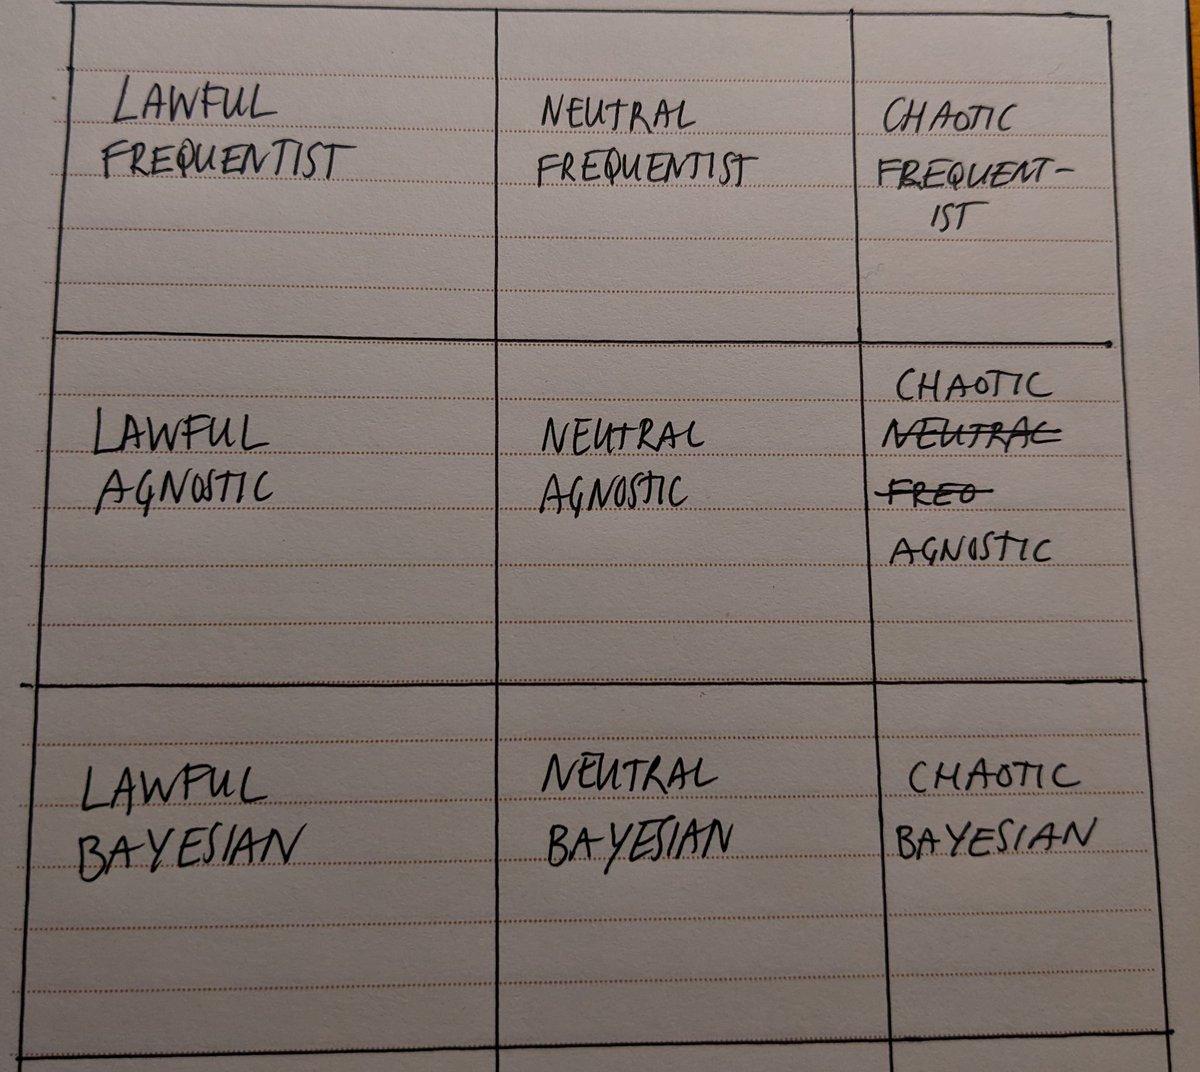 LAWFUL
FREQUENTIST
NEUTRAL
FREQUENTIST
CHAOTIC
FREQUENT-
IST
LAWFUL
AGNOSTIC
NEUTRAL
AGNOSTIC
CHAOTIC
NEUTRAL
FREQ
AGNOSTIC
LAWFUL
BAYESIAN
NEUTRAL
BAYESIAN
CHAOTIC
BAYESIAN